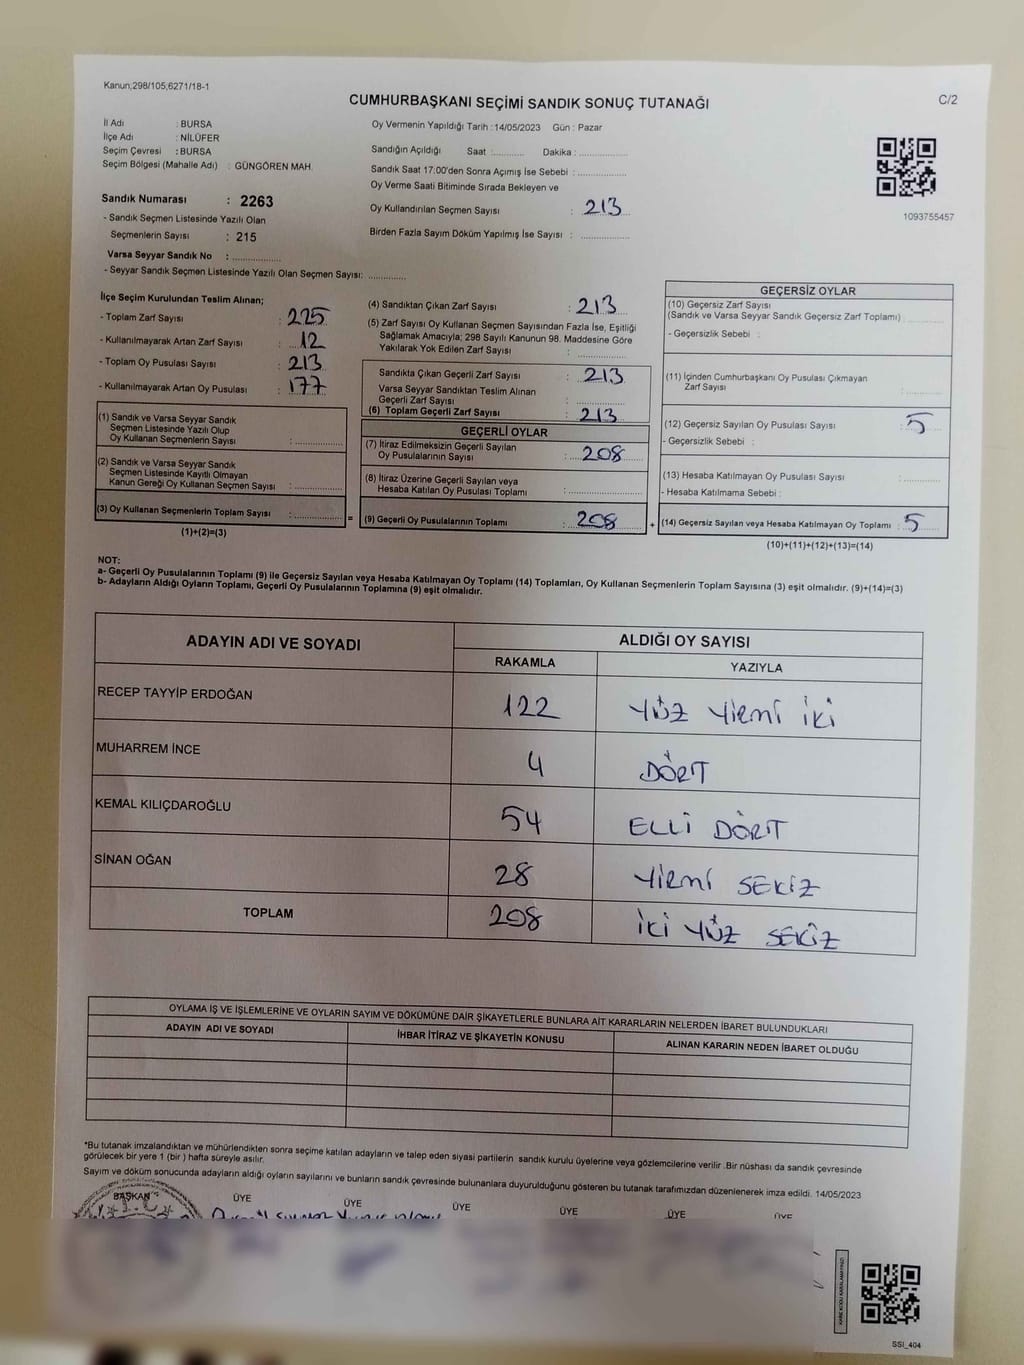 Kanun;298/105,6271/18-1
CUMHURBAŞKANI SEÇİMİ SANDIK SONUÇ TUTANAĞI
C/2
İl Adı : BURSA
İlçe Adı : NİLÜFER
Seçim Çevresi : BURSA
Seçim Bölgesi (Mahalle Adı) : GÜNGÖREN MAH.
Sandık Numarası : 2263
- Sandık Seçmen Listesinde Yazılı Olan
Seçmenlerin Sayısı : 215
Varsa Seyyar Sandık No : ................
- Seyyar Sandık Seçmen Listesinde Yazılı Olan Seçmen Sayısı: ............
Oy Vermenin Yapıldığı Tarih : 14/05/2023 Gün : Pazar
Sandığın Açıldığı Saat :........... Dakika : ................
Sandık Saat 17:00'den Sonra Açımış İse Sebebi : ................
Oy Verme Saati Bitiminde Sırada Bekleyen ve
Oy Kullandırılan Seçmen Sayısı : 213
Birden Fazla Sayım Döküm Yapılmış İse Sayısı : ................
1093755457
İlçe Seçim Kurulundan Teslim Alınan;
- Toplam Zarf Sayısı : 225
- Kullanılmayarak Artan Zarf Sayısı : 12
- Toplam Oy Pusulası Sayısı : 213
- Kullanılmayarak Artan Oy Pusulası : 177
(1) Sandık ve Varsa Seyyar Sandık
Seçmen Listesinde Yazılı Olup
Oy Kullanan Seçmenlerin Sayısı : ................
(2) Sandık ve Varsa Seyyar Sandık
Seçmen Listesinde Kayıtlı Olmayan
Kanun Gereği Oy Kullanan Seçmen Sayısı : ................
(3) Oy Kullanan Seçmenlerin Toplam Sayısı : ................
(1)+(2)=(3)
=
(4) Sandıktan Çıkan Zarf Sayısı : 213
(5) Zarf Sayısı Oy Kullanan Seçmen Sayısından Fazla İse, Eşitliği
Sağlamak Amacıyla; 298 Sayılı Kanunun 98. Maddesine Göre
Yakılarak Yok Edilen Zarf Sayısı : ................
Sandıkta Çıkan Geçerli Zarf Sayısı : 213
Varsa Seyyar Sandıktan Teslim Alınan
Geçerli Zarf Sayısı : ................
(6) Toplam Geçerli Zarf Sayısı : 213
GEÇERLİ OYLAR
(7) İtiraz Edilmeksizin Geçerli Sayılan
Oy Pusulalarının Sayısı : 208
(8) İtiraz Üzerine Geçerli Sayılan veya
Hesaba Katılan Oy Pusulası Toplamı : ................
(9) Geçerli Oy Pusulalarının Toplamı : 208
+
GEÇERSİZ OYLAR
(10) Geçersiz Zarf Sayısı
(Sandık ve Varsa Seyyar Sandık Geçersiz Zarf Toplamı) : ............
- Geçersizlik Sebebi :
(11) İçinden Cumhurbaşkanı Oy Pusulası Çıkmayan
Zarf Sayısı : ............
(12) Geçersiz Sayılan Oy Pusulası Sayısı : 5
- Geçersizlik Sebebi :
(13) Hesaba Katılmayan Oy Pusulası Sayısı : ............
- Hesaba Katılmama Sebebi :
(14) Geçersiz Sayılan veya Hesaba Katılmayan Oy Toplamı : 5
(10)+(11)+(12)+(13)=(14)
NOT:
a- Geçerli Oy Pusulalarının Toplamı (9) ile Geçersiz Sayılan veya Hesaba Katılmayan Oy Toplamı (14) Toplamları, Oy Kullanan Seçmenlerin Toplam Sayısına (3) eşit olmalıdır. (9)+(14)=(3)
b- Adayların Aldığı Oyların Toplamı, Geçerli Oy Pusulalarının Toplamına (9) eşit olmalıdır.
ADAYIN ADI VE SOYADI ALDIĞI OY SAYISI
RAKAMLA YAZIYLA
RECEP TAYYİP ERDOĞAN 122 YÜZ YİRMİ İKİ
MUHARREM İNCE 4 DÖRT
KEMAL KILIÇDAROĞLU 54 ELLİ DÖRT
SİNAN OĞAN 28 YİRMİ SEKİZ
TOPLAM 208 İKİ YÜZ SEKİZ
OYLAMA İŞ VE İŞLEMLERİNE VE OYLARIN SAYIM VE DÖKÜMÜNE DAİR ŞİKAYETLERLE BUNLARA AİT KARARLARIN NELERDEN İBARET BULUNDUKLARI
ADAYIN ADI VE SOYADI İHBAR İTİRAZ VE ŞİKAYETİN KONUSU ALINAN KARARIN NEDEN İBARET OLDUĞU
*Bu tutanak imzalandıktan ve mühürlendikten sonra seçime katılan adayların ve talep eden siyasi partilerin sandık kurulu üyelerine veya gözlemcilerine verilir .Bir nüshası da sandık çevresinde
görülecek bir yere 1 (bir ) hafta süreyle asılır.
Sayım ve döküm sonucunda adayların aldığı oyların sayılarını ve bunların sandık çevresinde bulunanlara duyurulduğunu gösteren bu tutanak tarafımızdan düzenlenerek imza edildi. 14/05/2023
BAŞKAN ÜYE ÜYE ÜYE ÜYE ÜYE ÜYE
T.C
SSI_404